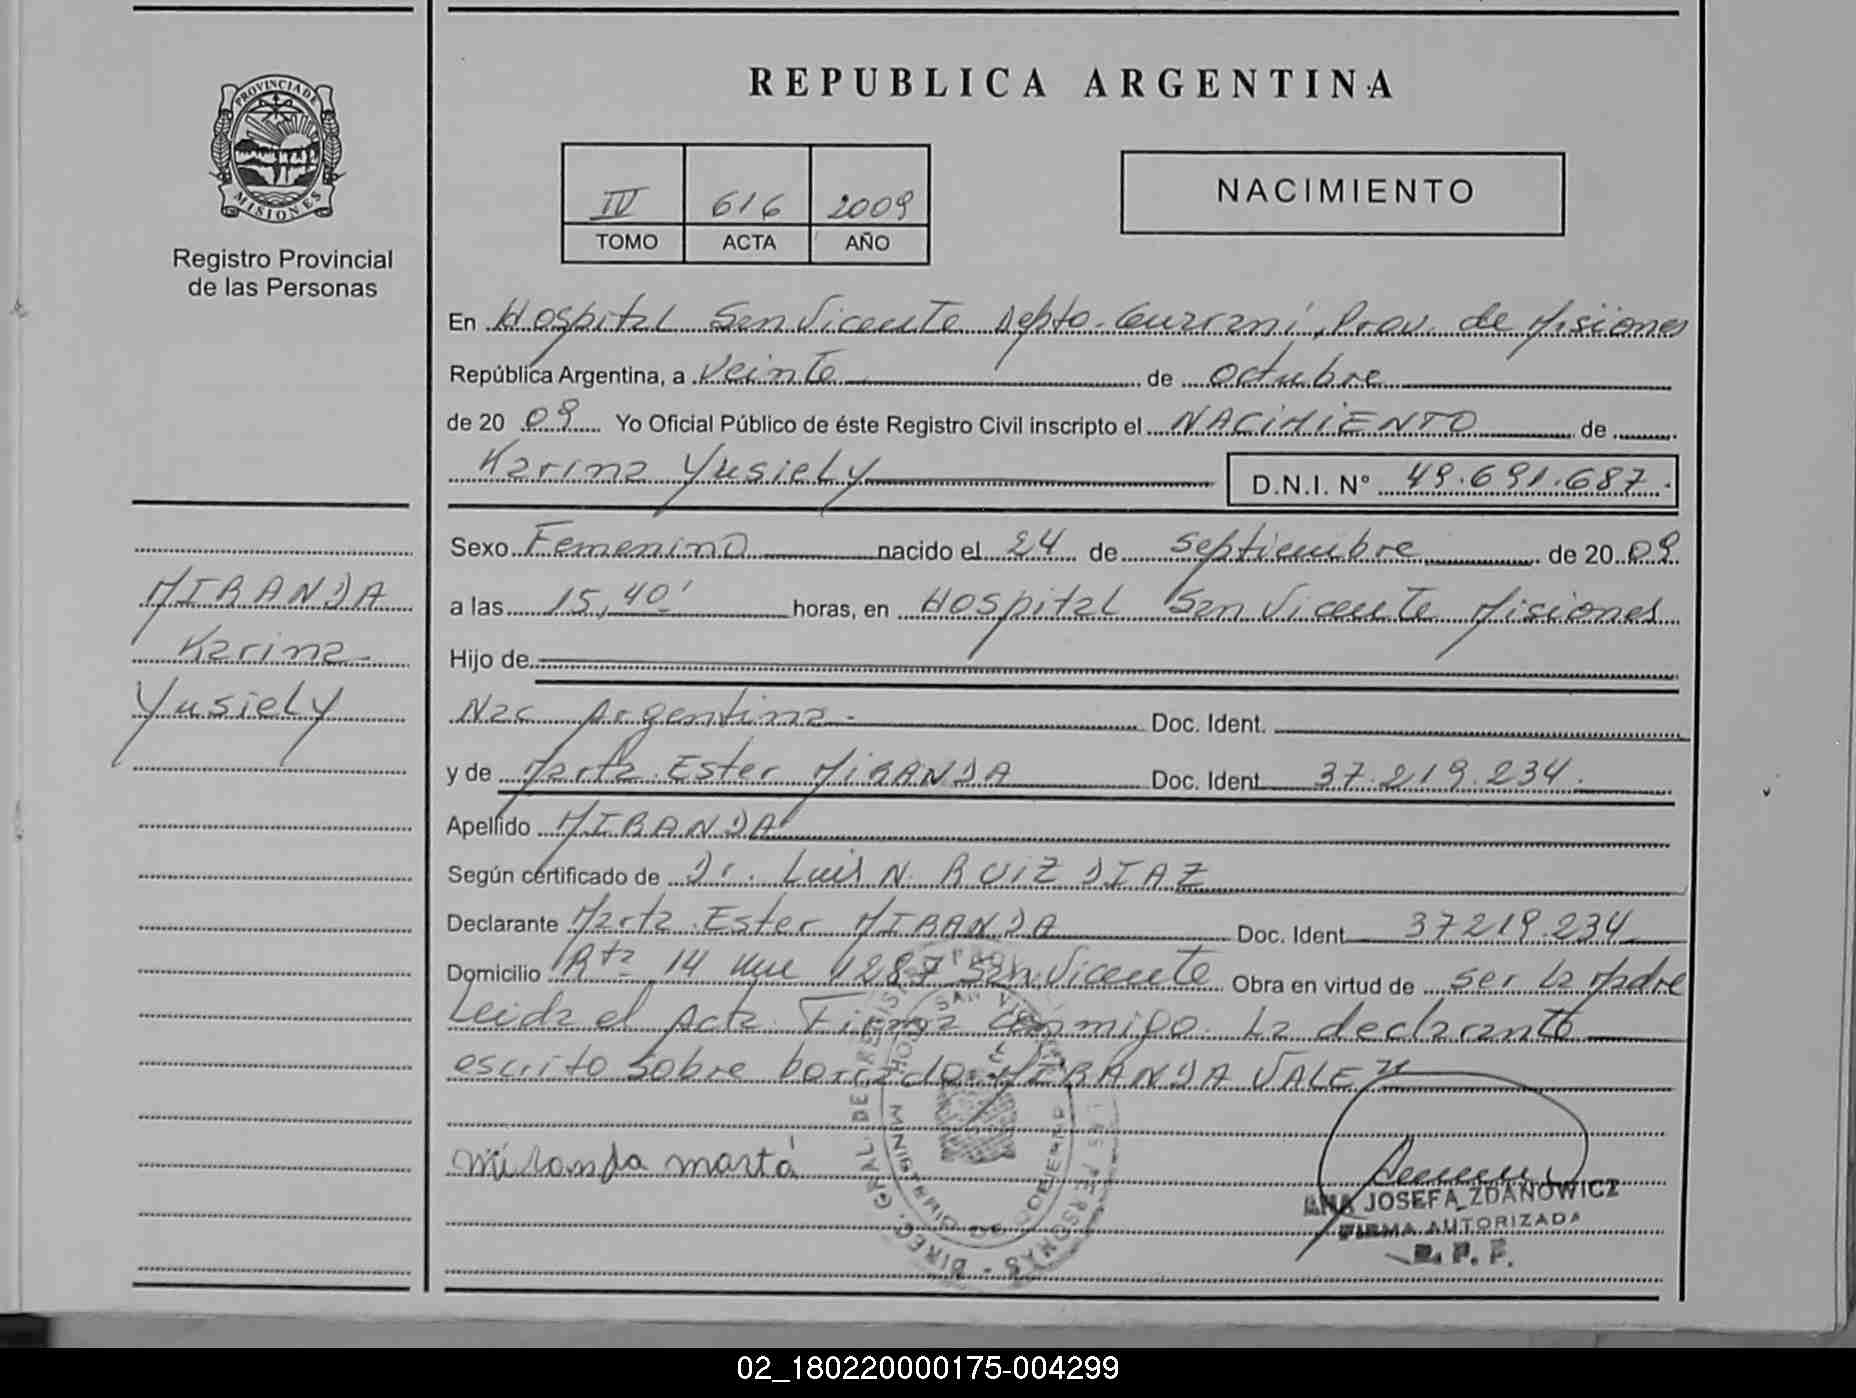 REPUBLICA ARGENTINA
PROVINCIA DE
MISIONES
Registro Provincial
de las Personas
IV 616 2009
TOMO ACTA AÑO
NACIMIENTO
En Hospital San Vicente Depto. Guarani, Prov. de Misiones
República Argentina, a Veinte de octubre
de 20 09 Yo Oficial Público de éste Registro Civil inscripto el NACIMIENTO de
Karina Yusiely D.N.I. N° 49.691.687.
Sexo Femenino nacido el 24 de Septiembre de 20 09
a las 15,40' horas, en Hospital San Vicente Misiones
Hijo de
Nac Argentina. Doc. Ident.
y de Marta Ester MIRANDA Doc. Ident 37.219.234.
Apellido MIRANDA
Según certificado de Dr. Luis N. RUIZ DIAZ
Declarante Marta Ester MIRANDA Doc. Ident 37219.234
Domicilio Rta 14 1287 San Vicente Obra en virtud de ser la Madre
Leida el Acta Firma conmigo La declarante
escrito sobre borrado: MIRANDA VALE
MIRANDA
Karina
Yusiely
miranda marta
ANA JOSEFA ZDANOWICZ
FIRMA AUTORIZADA
R. P. P.
02_180220000175-004299